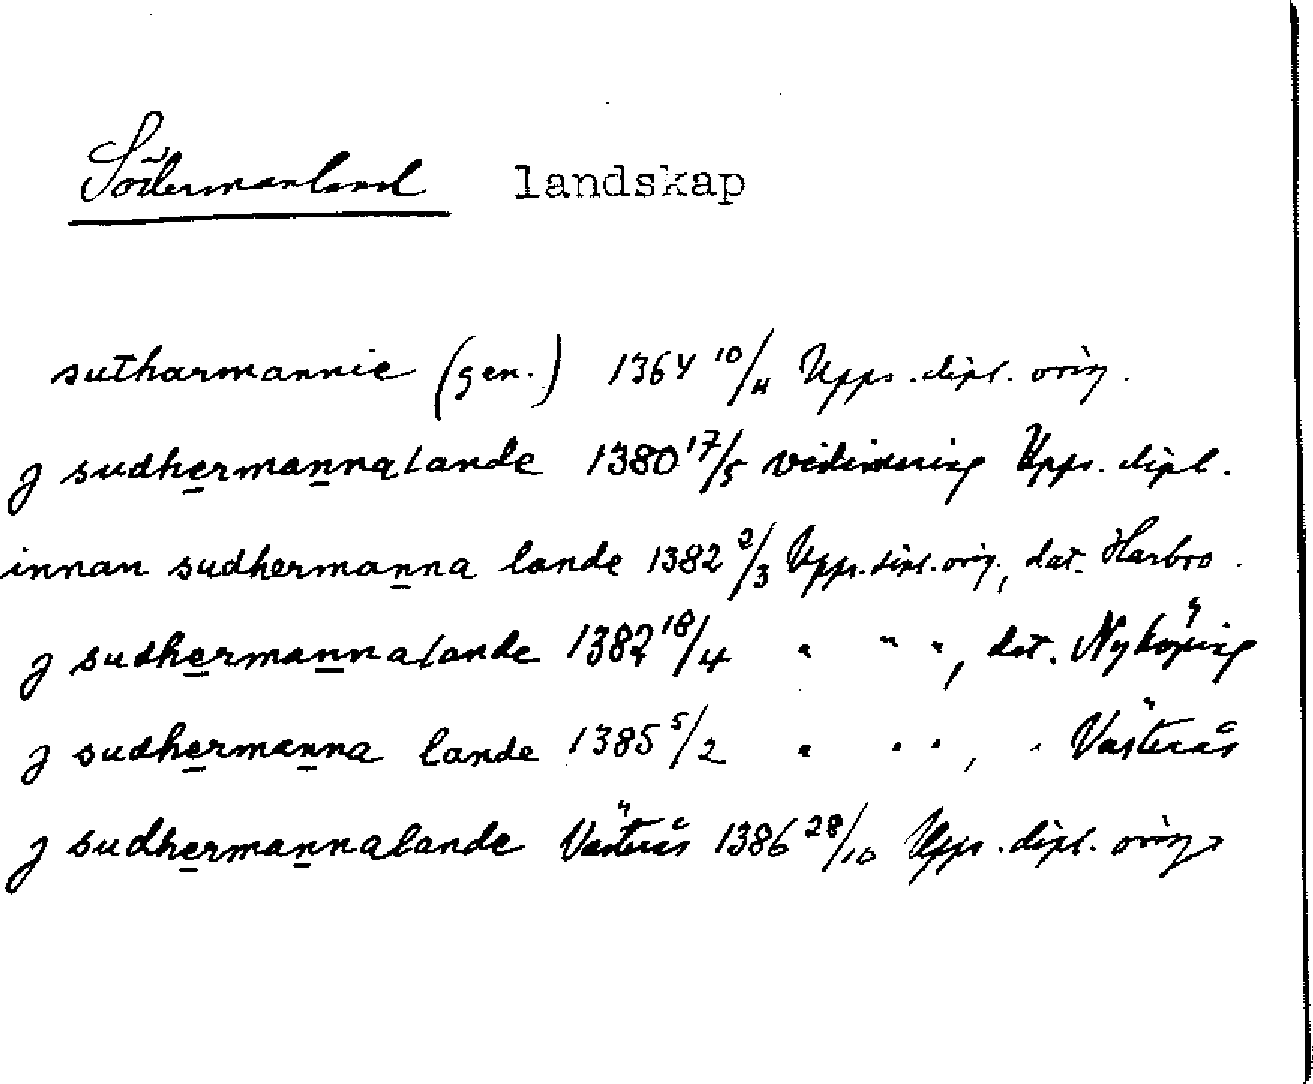 Södermanland landskap
sutharmannie (gen.) 1364 10/4 Upps. dipl. orig.
j sudhermannalande 1380 17/5 vidimering Upps. dipl.
innan sudhermanna lande 1382 2/3 Upps. dipl. orig., dat. Harbro.
j sudhermannalande 1382 18/4 " " ", dat. Nyköping
j sudhermanna lande 1385 5/2 " " ", " Västerås
j sudhermannalande Västerås 1386 28/10 Upps. dipl. orig.